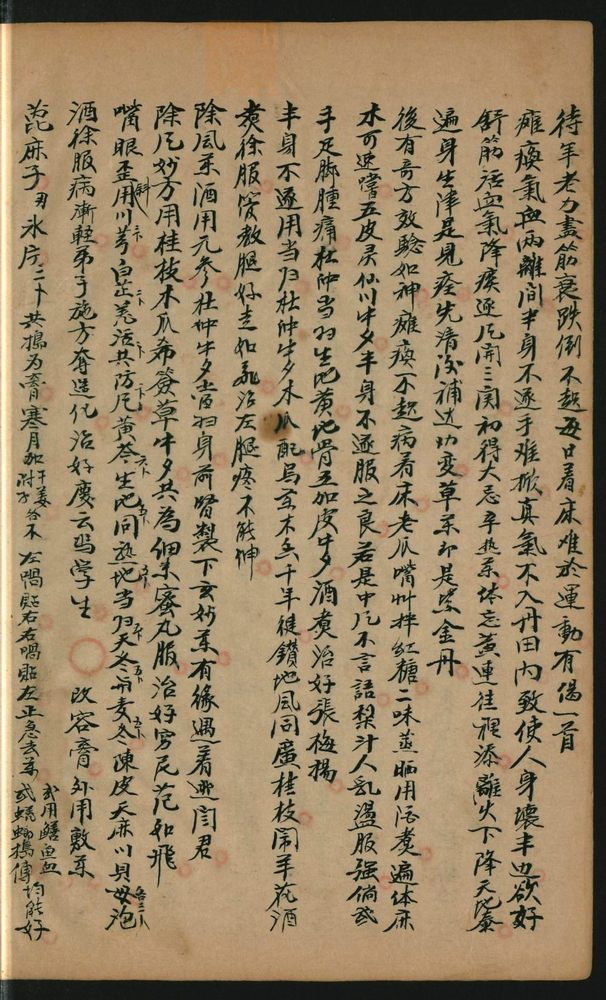 待年老力盡筋衰跌倒不起每日着床难於運動有偈一首
癱瘓氣血兩離間半身不遂手难掀真氣不入丹田内致使人身壞半边欲好
舒筋活血氣降痰逐风開三関初得大忌辛热药体忘黄連往裡添離火下降天地泰
遍身生津是見痊先清后補迖功变草药即是紫金丹
後有奇方效騐如神癱瘓不起病着床老瓜嘴艸拌紅糖二味蒸晒用酒煑遍体麻
木可速嚐五皮灵仙川牛夕半身不遂服之良若是中风不言語梨汁人乳温服强倘或
手足脚腫痛杜仲当归生地黄地骨五加皮牛夕酒煑治好張梅楊
半身不遂用当归杜仲牛夕木瓜配烏药木香千年健鑽地风同廣桂枝闹羊花酒
煑徐服管教腿好走如飛治左腿疼不能伸
除风药酒用元参杜仲牛夕當归身前腎製下玄妙药有缘遇着迯閆君
除风妙方用桂枝木瓜希簽草牛夕共為细末蜜丸服治好穷民范如飛
嘴眼歪斜用川芎白芷羌活共防风黄芩生地同熟地当归天冬与麦冬陳皮天麻川貝母泡各三卜
酒徐服病漸輕弟子施方奪造化治好慶云馬学生 改容膏外用敷药
萞麻子刃氷片二卜共搗为膏寒月加干姜附子各不左喎貼右右喎貼左正急去药或用鱔魚血或蟯螂搗傅均能好